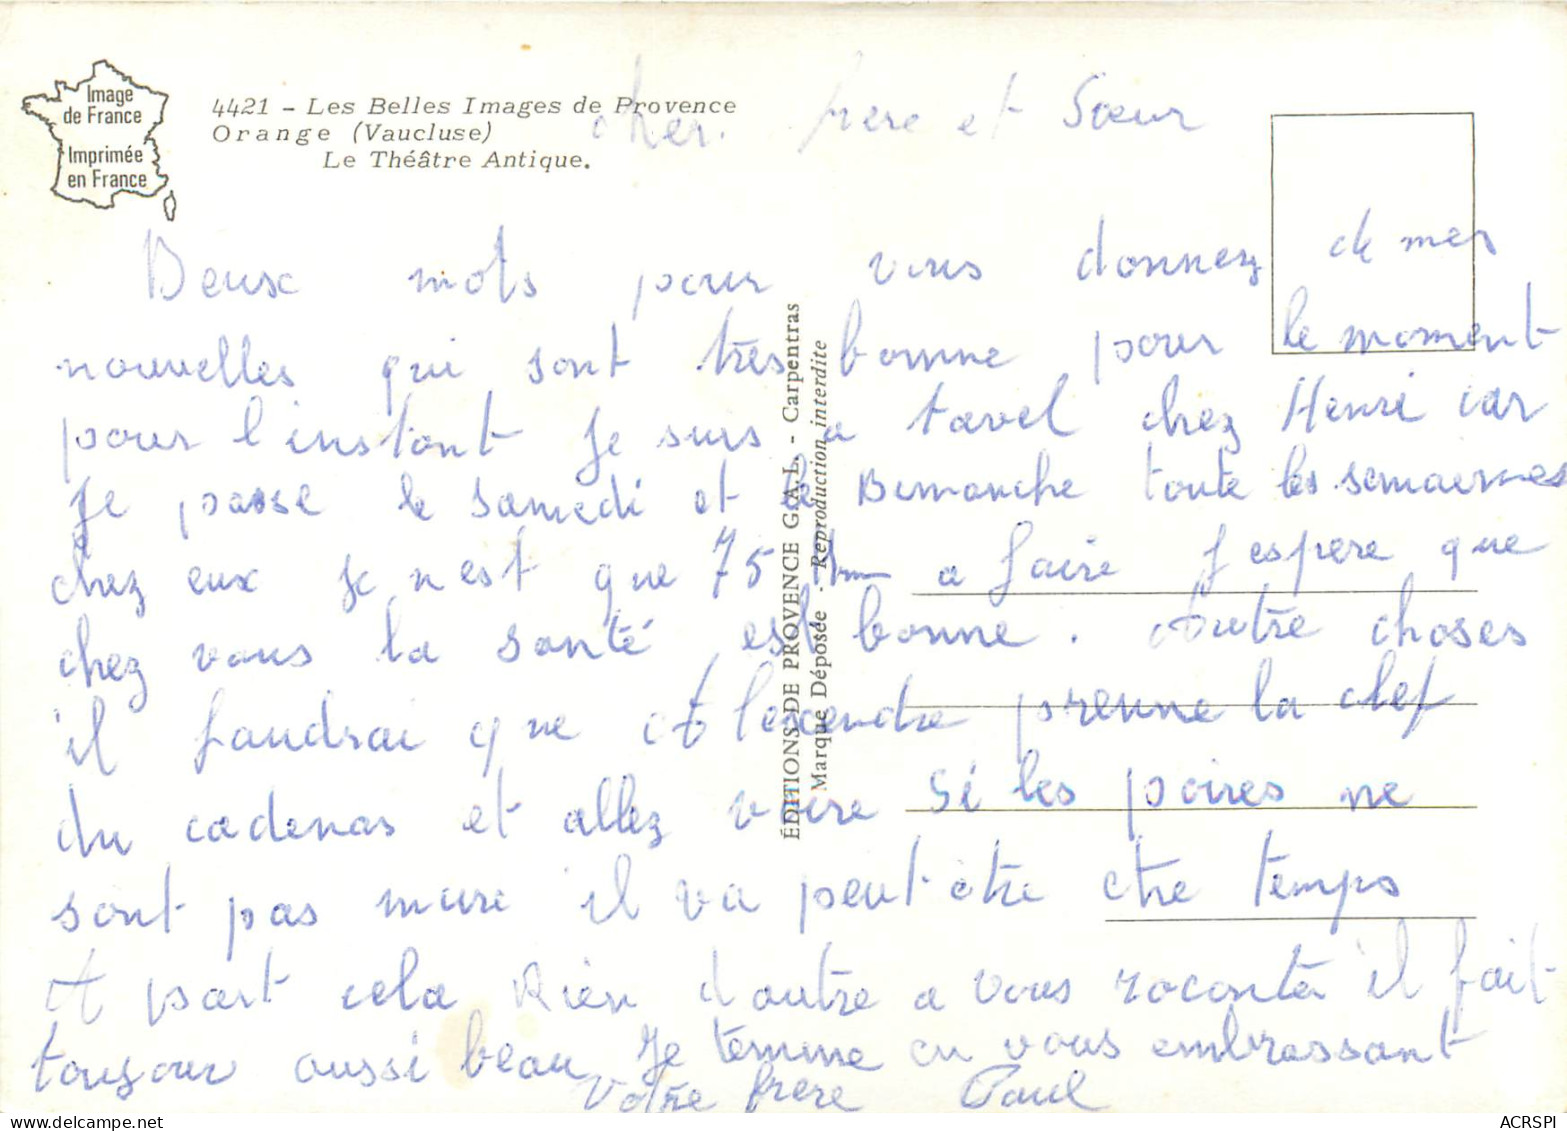 Image
de France
Imprimée
en France
4421 - Les Belles Images de Provence
Orange (Vaucluse)
Le Théâtre Antique.
cher. frere et Sœur
Deux mots pour vous donnez de mes
nouvelles qui sont très bonne pour le moment
pour l'instant je suis a tavel chez Henri car
je passe le samedi et le Dimanche toute les semaines
chez eux je n est que 75 Km a faire j espere que
chez vous la santé est bonne. Autre choses
il faudrai que Alexendre prenne la clef
du cadenas et allez voire si les poires ne
sont pas mure il va peut être etre temps
A part cela Rien d autre a vous raconter il fait
toujour aussi beau je termine en vous embrassant
Votre frere Paul
ÉDITIONS DE PROVENCE G.A.L. - Carpentras
Marque Déposée - Reproduction interdite
ACRSPI